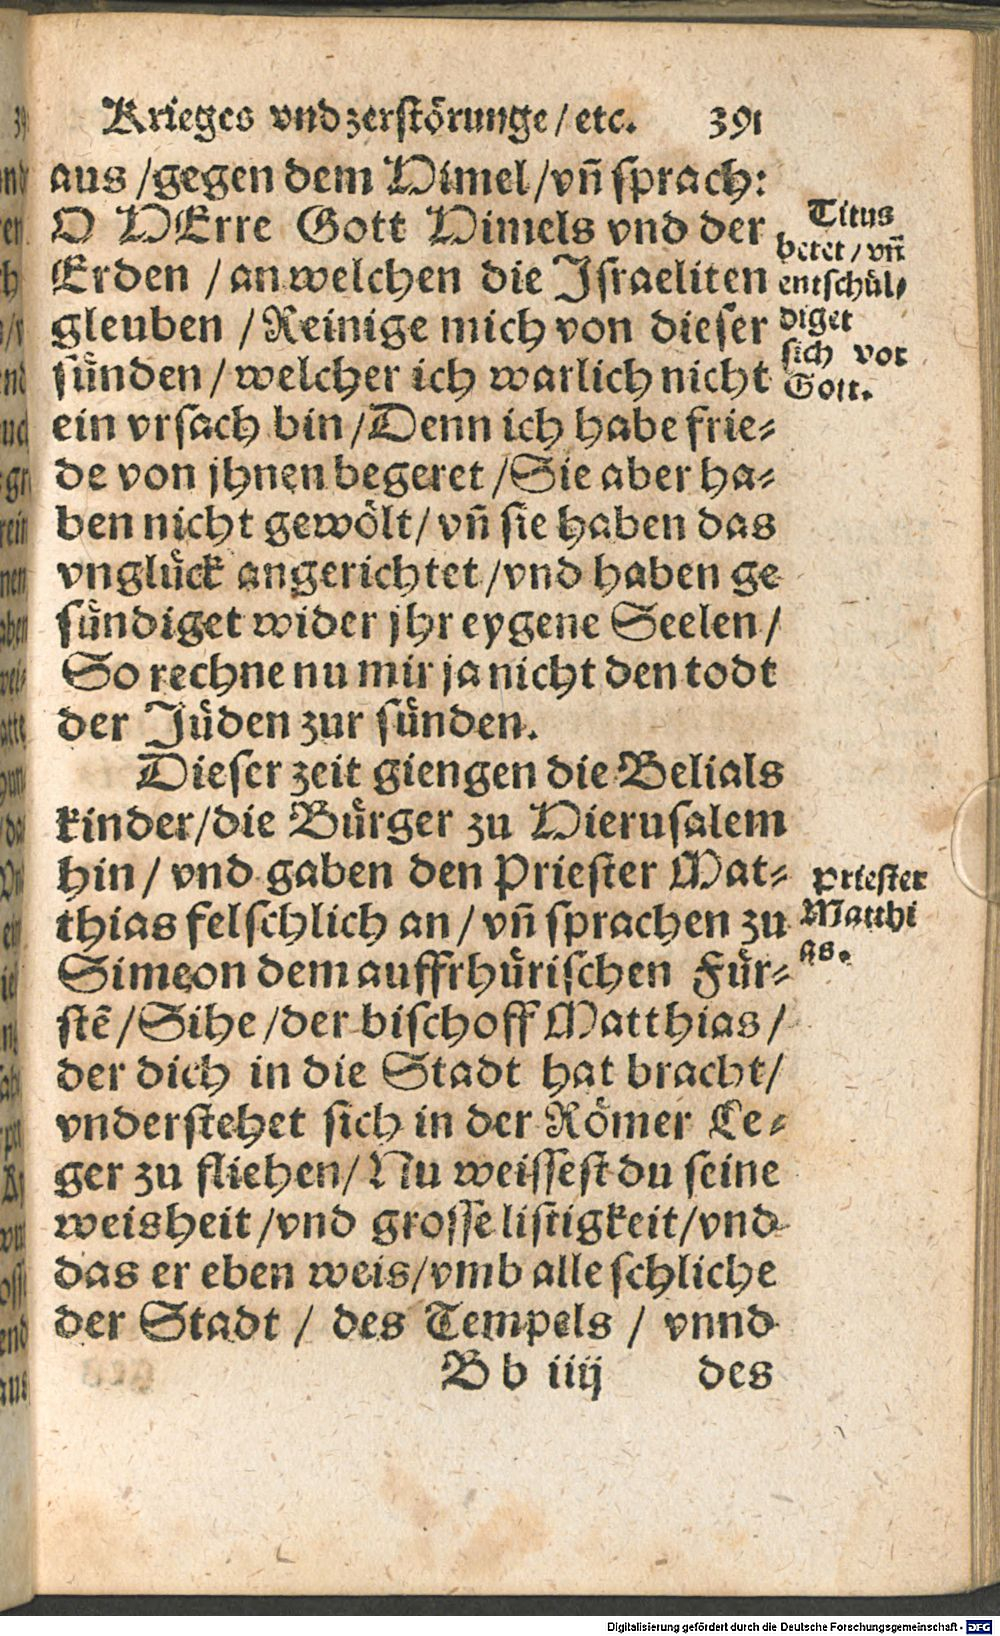 Krieges vnd zerstörunge / etc. 391
aus / gegen dem Himel / vñ sprach:
O HErre Gott Himels vnd der
Erden / an welchen die Israeliten
gleuben / Reinige mich von dieser
sünden / welcher ich warlich nicht
ein vrsach bin / Denn ich habe frie-
de von jhnen begeret / Sie aber ha-
ben nicht gewölt / vñ sie haben das
vnglück angerichtet / vnd haben ge
sündiget wider jhr eygene Seelen /
So rechne nu mir ja nicht den todt
der Jüden zur sünden.
Titus
betet / vñ
entschül-
diget
sich vor
Gott.
Dieser zeit giengen die Belials
kinder / die Bürger zu Hierusalem
hin / vnd gaben den Priester Mat-
thias felschlich an / vñ sprachen zu
Simeon dem auffrhürischen Für-
stē / Sihe / der bischoff Matthias /
der dich in die Stadt hat bracht /
vnderstehet sich in der Römer Le-
ger zu fliehen / Nu weissest du seine
weisheit / vnd grosse listigkeit / vnd
das er eben weis / vmb alle schliche
der Stadt / des Tempels / vnnd
Priester
Matthi
as.
B b iiij des
Digitalisierung gefördert durch die Deutsche Forschungsgemeinschaft - DFG